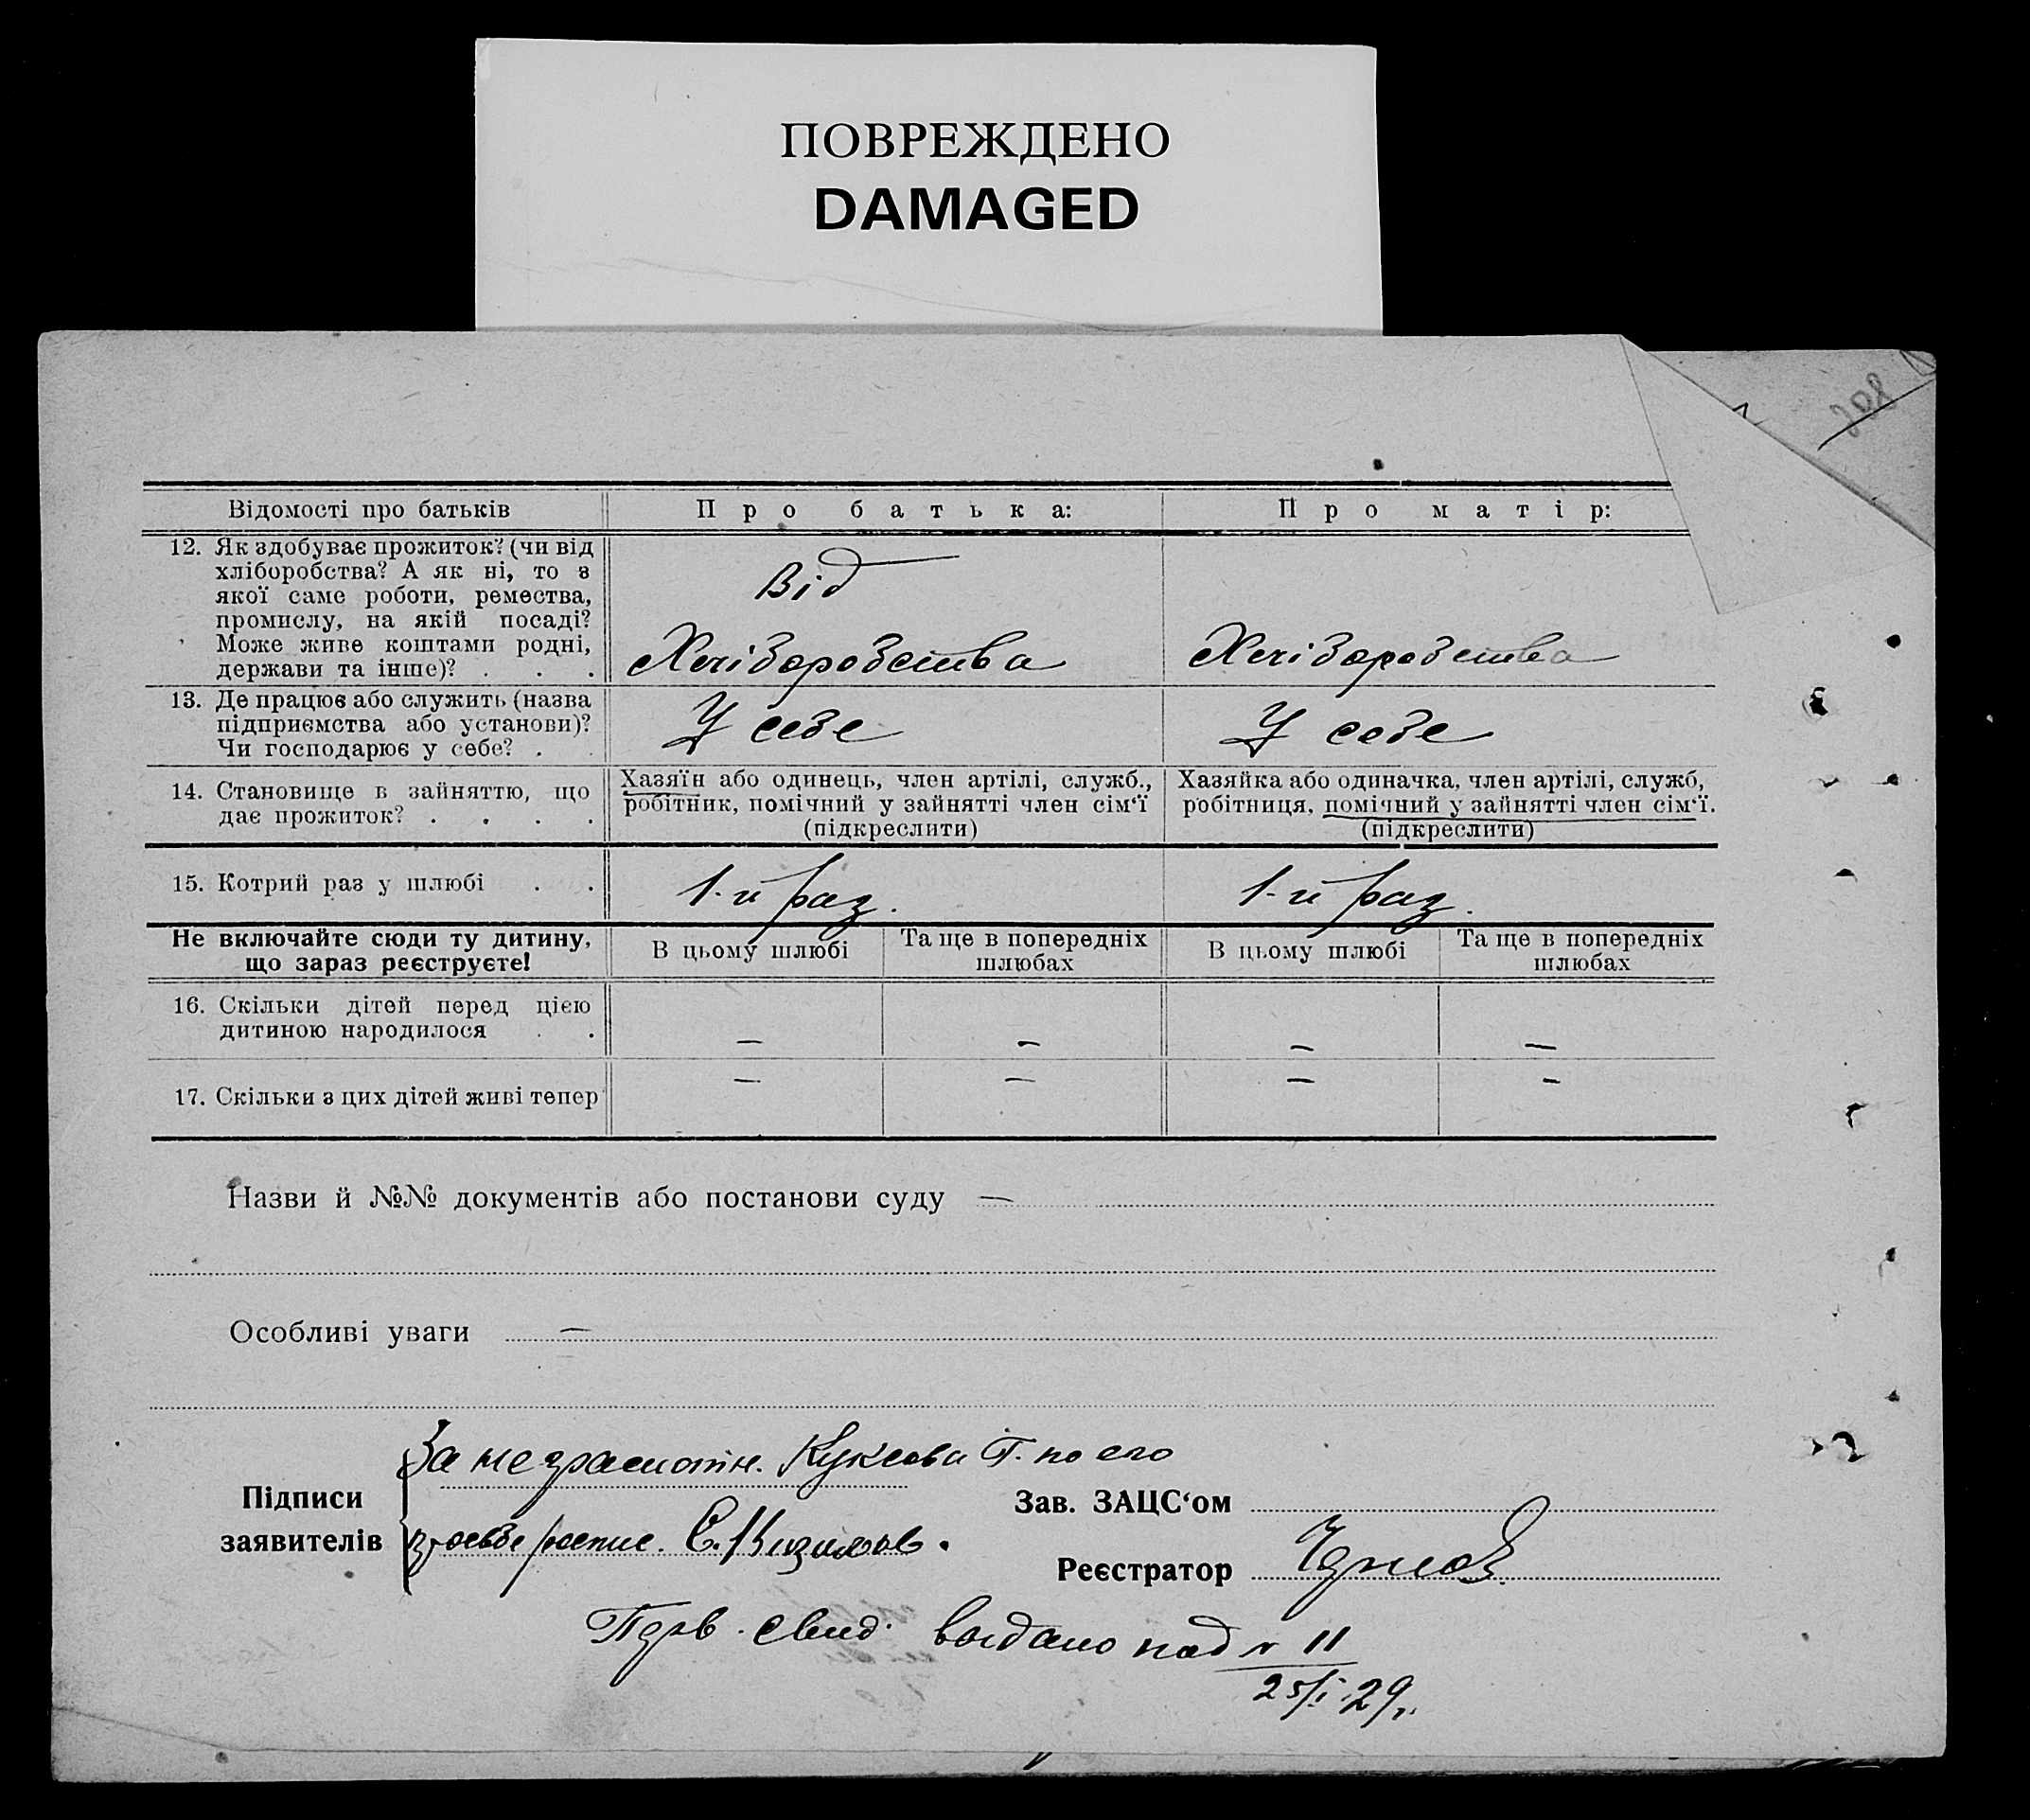 ПОВРЕЖДЕНО
DAMAGED
Відомості про батьків
Про батька:
Про матір:
12. Як здобуває прожиток? (чи від
хліборобства? А як ні, то з
якої саме роботи, ремества,
промислу, на якій посаді?
Може живе коштами родні,
держави та інше)? . . .
Від
Хліборобства
Хліборобства
13. Де працює або служить (назва
підприємства або установи)?
Чи господарює у себе? . .
У себе
У себе
14. Становище в зайняттю, що
дає прожиток? . . . .
Хазяїн або одинець, член артілі, служб.,
робітник, помічний у зайнятті член сім‘ї
(підкреслити)
Хазяйка або одиначка, член артілі, служб,
робітниця, помічний у зайнятті член сім‘ї.
(підкреслити)
15. Котрий раз у шлюбі . .
1-й раз.
1-й раз.
Не включайте сюди ту дитину,
що зараз реєструєте!
В цьому шлюбі
Та ще в попередніх
шлюбах
В цьому шлюбі
Та ще в попередніх
шлюбах
16. Скільки дітей перед цією
дитиною народилося . .
— — — —
17. Скільки з цих дітей живі тепер
— — — —
Назви й №№ документів або постанови суду —
Особливі уваги —
Підписи
заявителів
За неграмотн. Куксова Т. по его
просьбе роспис. С.
Зав. ЗАЦС‘ом
Реєстратор
свид. выдано под № 11
25/I 29 г.